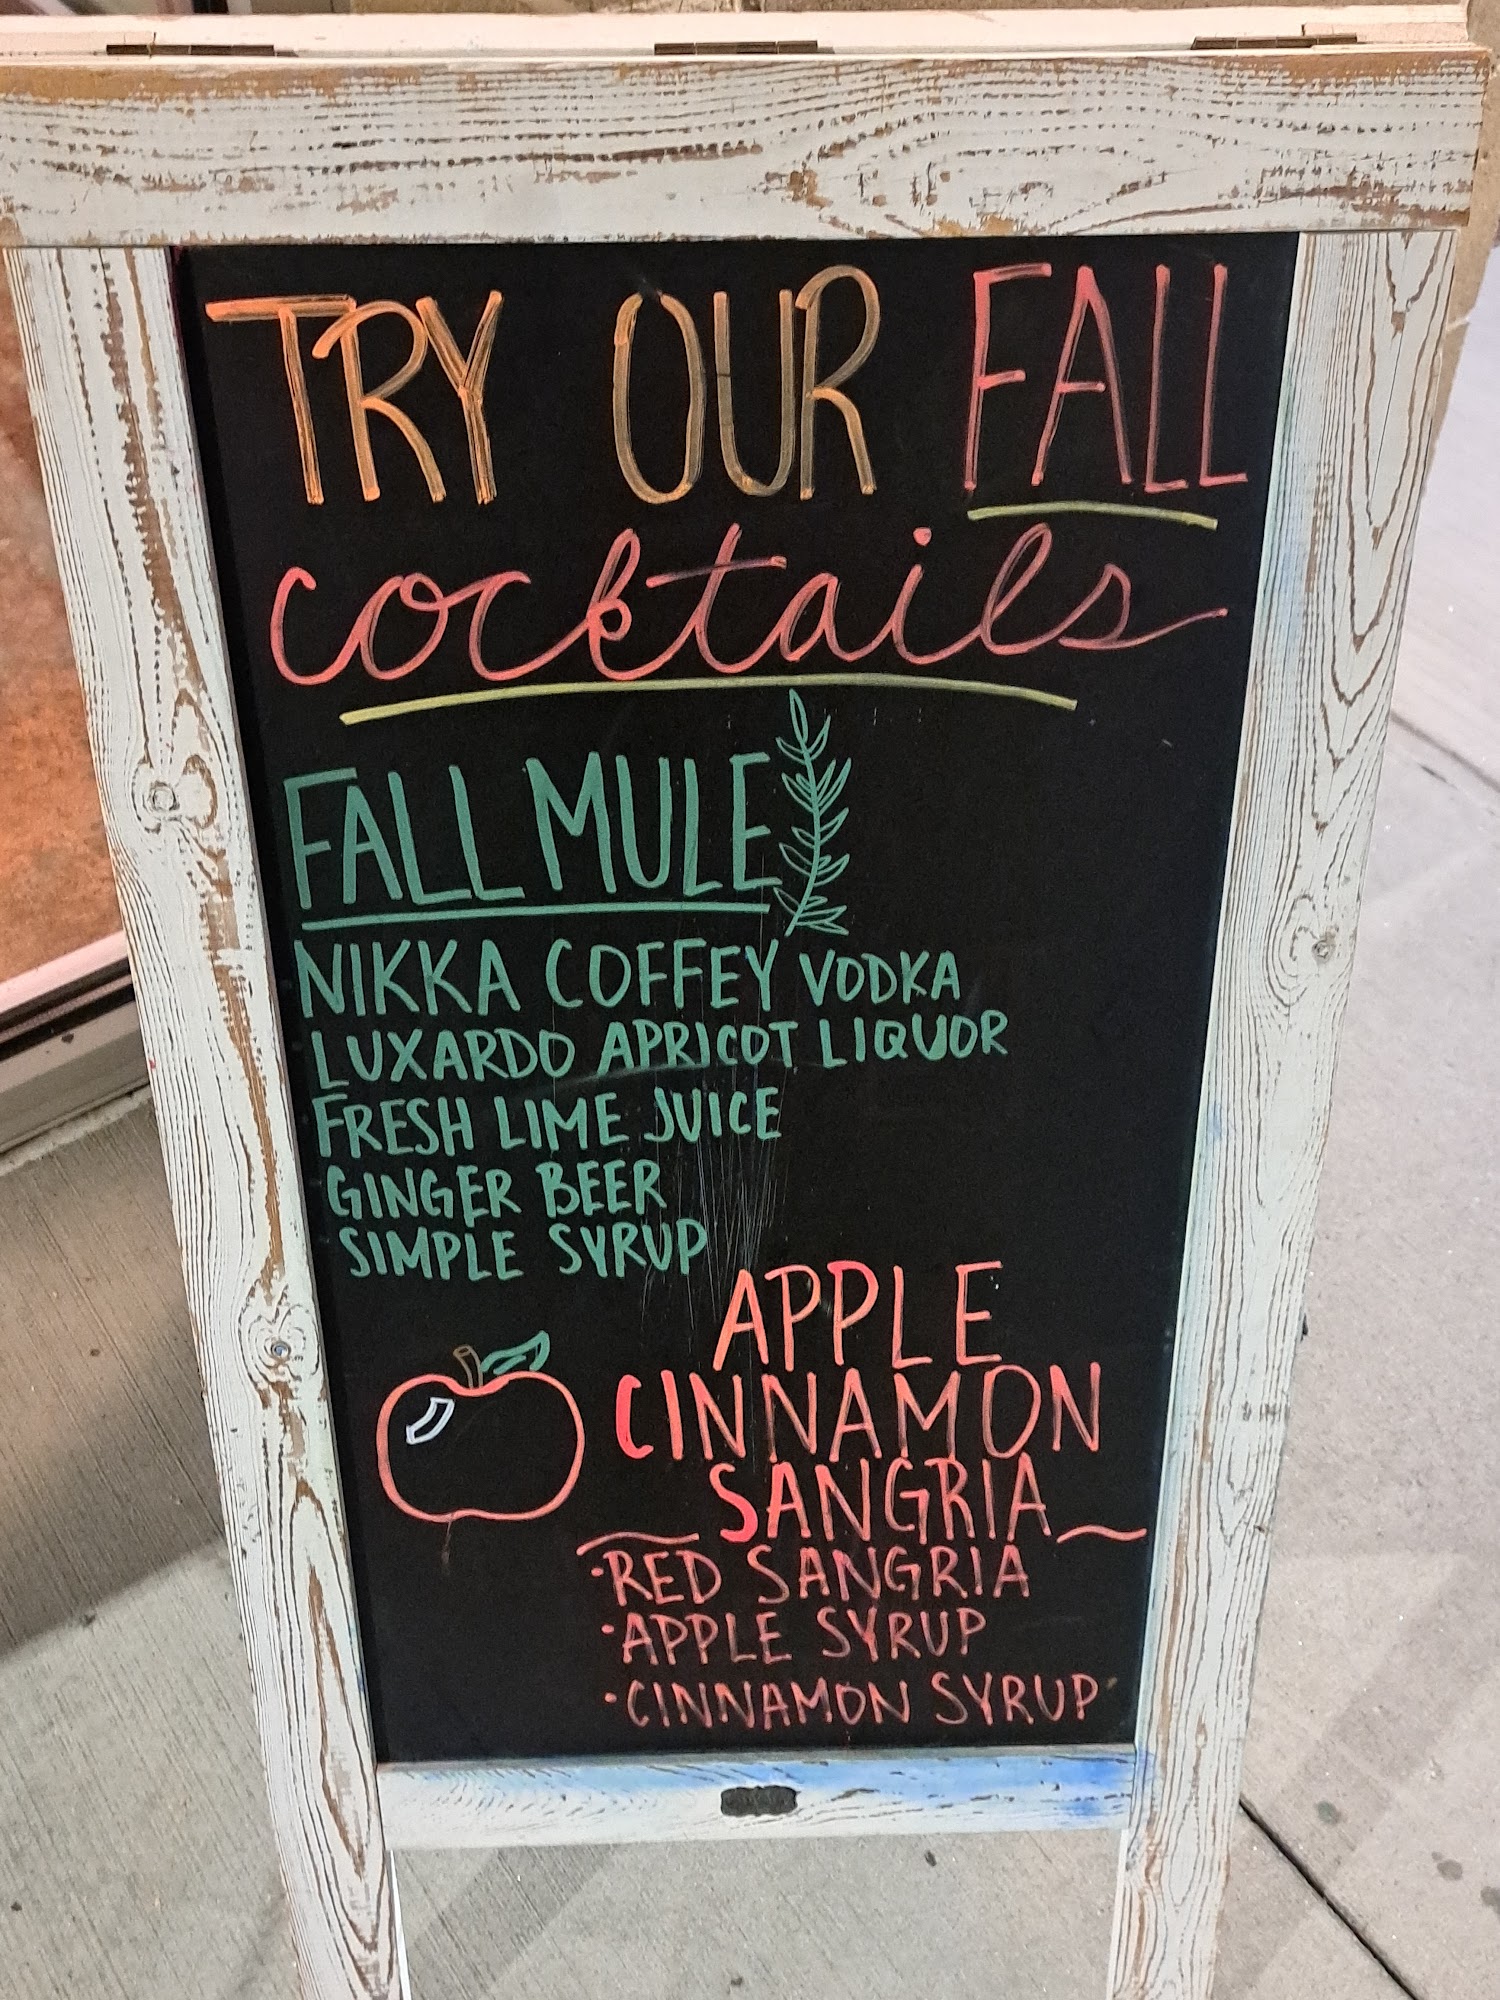 TRY OUR FALL
cocktails
FALL MULE
NIKKA COFFEY VODKA
LUXARDO APRICOT LIQUOR
FRESH LIME JUICE
GINGER BEER
SIMPLE SYRUP
APPLE
CINNAMON
SANGRIA
·RED SANGRIA
·APPLE SYRUP
·CINNAMON SYRUP